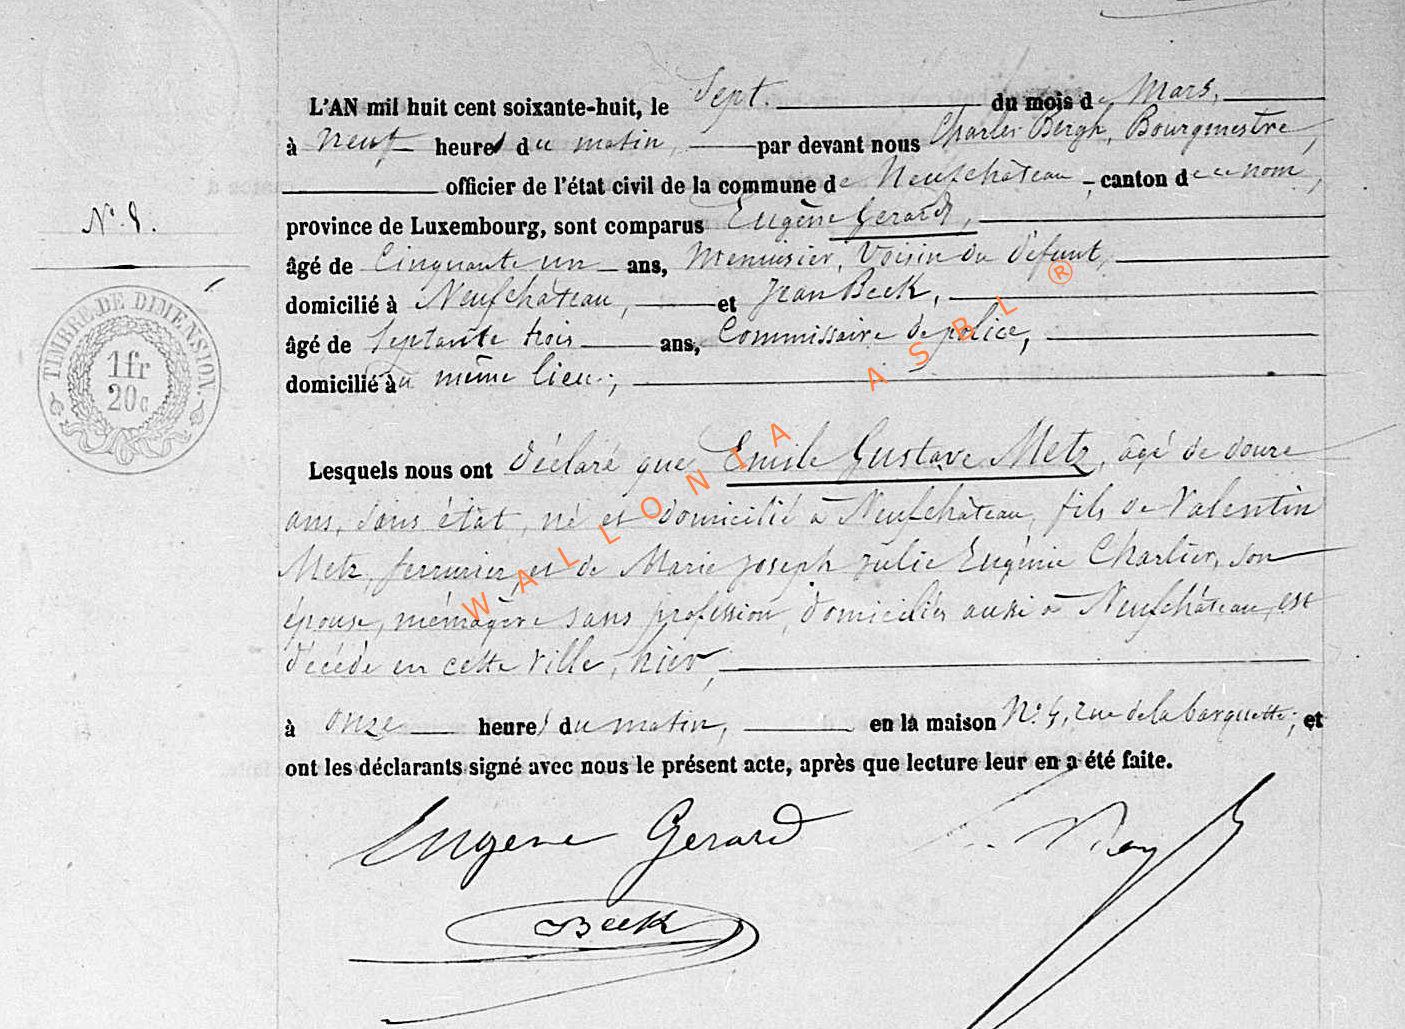 L'AN mil huit cent soixante-huit, le Sept. du mois de Mars,
à neuf heures du matin, par devant nous Charles Bergh, Bourgmestre,
officier de l'état civil de la commune de Neufchâteau, canton de ce nom,
province de Luxembourg, sont comparus Eugène Gerard,
âgé de Cinquante un ans, Menuisier, Voisin du défunt,
domicilié à Neufchâteau, et Jean Beck,
âgé de Septante trois ans, Commissaire de police,
domicilié au même lieu;
N° 8.
TIMBRE DE DIMENSION.
1fr
20c
Lesquels nous ont déclaré que Emile Gustave Metz, âgé de douze
ans, sans état, né et domicilié à Neufchâteau, fils de Valentin
Metz, ferronnier, et de Marie Joseph Julie Eugénie Charlier, son
épouse, ménagère sans profession, domiciliés aussi à Neufchâteau, est
décédé en cette ville, hier,
à onze heures du matin, en la maison N° 4, rue de la barquette; et
ont les déclarants signé avec nous le présent acte, après que lecture leur en a été faite.
Eugène Gerard
Beck
WALLONIA ASBL ®